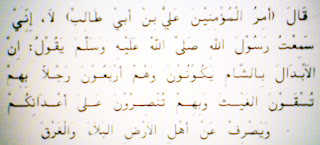 قَالَ (أمرُ المُؤْمنيْن عليُّ بن أبي طَالبْ) لاَ، إنِّيْ
سَمعْت رَسُوْل اللهُ صَلَّى اللهُ عَلَيْه وَسَلَّم يَقُوْلُ: انَّ
الأبْدَالَ بالشَّام يَكُوْنُوْنَ وَهُمْ أرْبعُوْن رَجُلاً بهمْ
تُسْقَوْن الغَيْثَ وبهم تُنْصرُوْنَ عَلَى أعْدَائكُمْ
وَيَصْرفُ عَن أهْل الأرْض البَلاَء وَالغَرَقَ